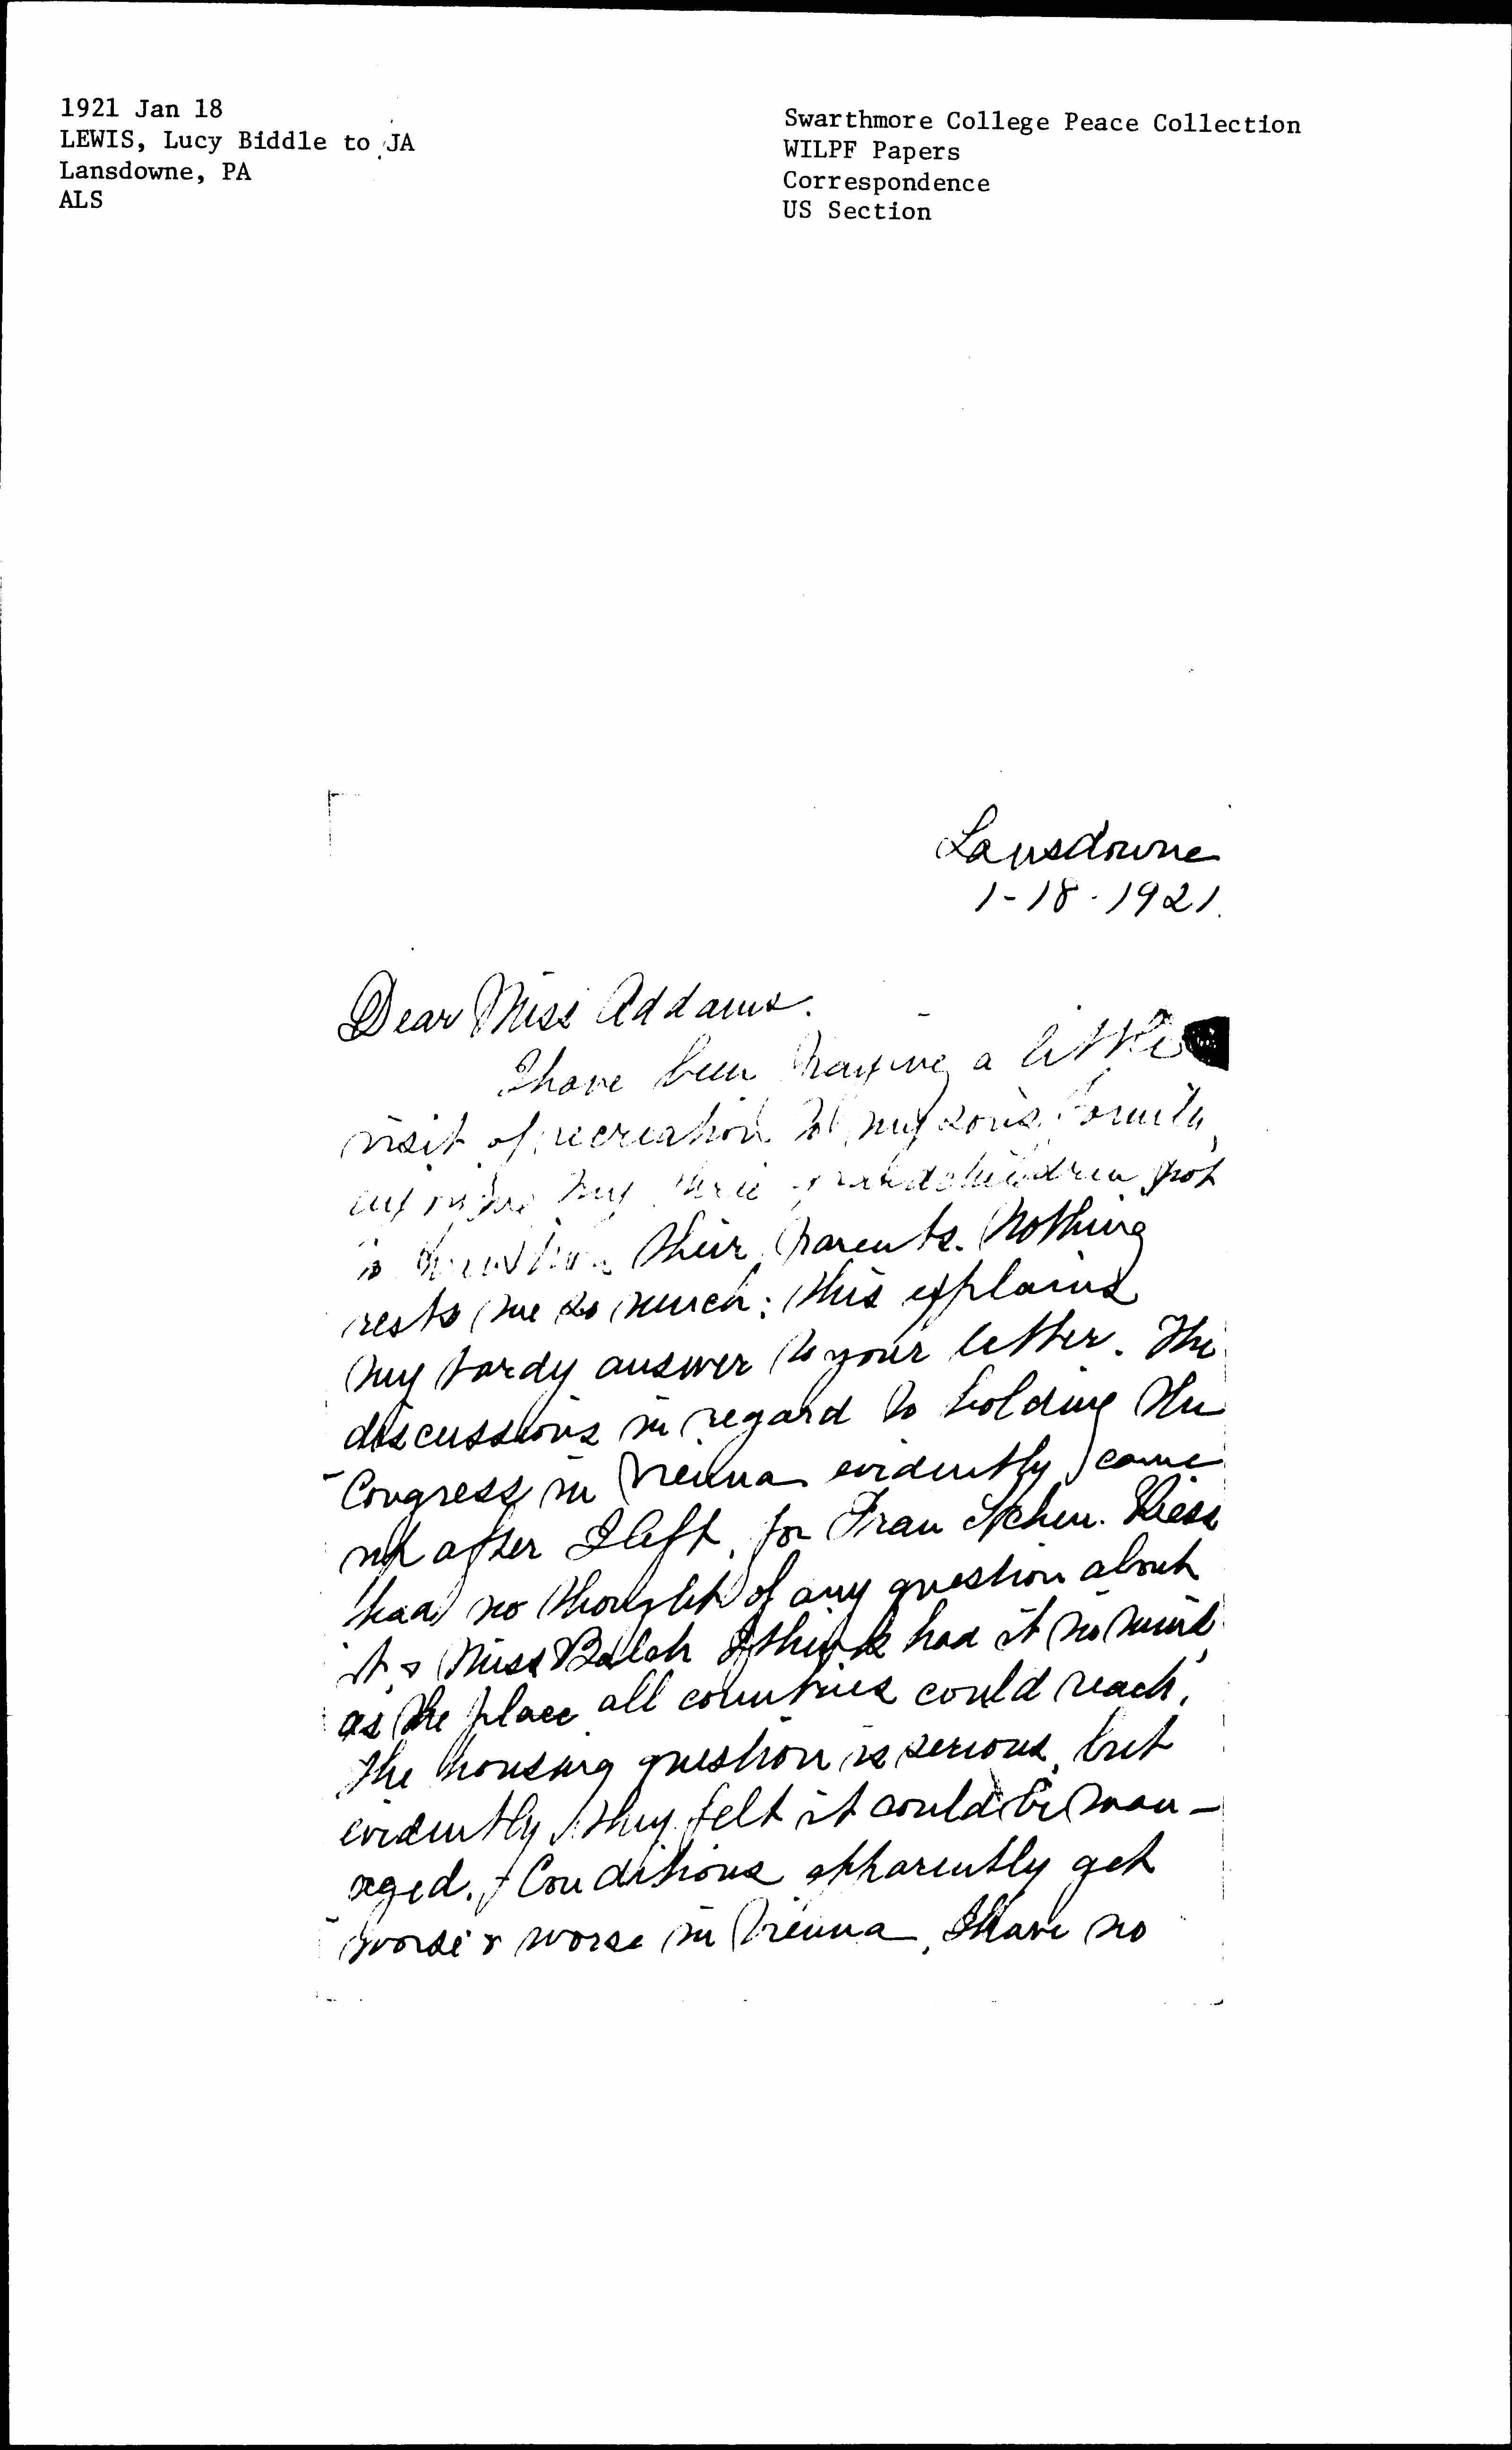 1921 Jan 18
LEWIS, Lucy Biddle to JA
Lansdowne, PA
ALS
Swarthmore College Peace Collection
WILPF Papers
Correspondence
US Section
Lansdowne
1-18-1921.
Dear Miss Addams.
I have been having a little
visit of recreation to my son's family,
my three grandchildren not
to mention their parents. Nothing
rests me so much; this explains
my tardy answer to your letter. The
discussions in regard to holding the
Congress in Vienna evidently came
up after I left, for Frau Scheu-Riess
had no thought of any question about
it & Miss Balch I think had it in mind
as the place all countries could reach,
the housing question is serious, but
evidently they felt it could be man-
aged. Conditions apparently get
worse & worse in Vienna, I have no